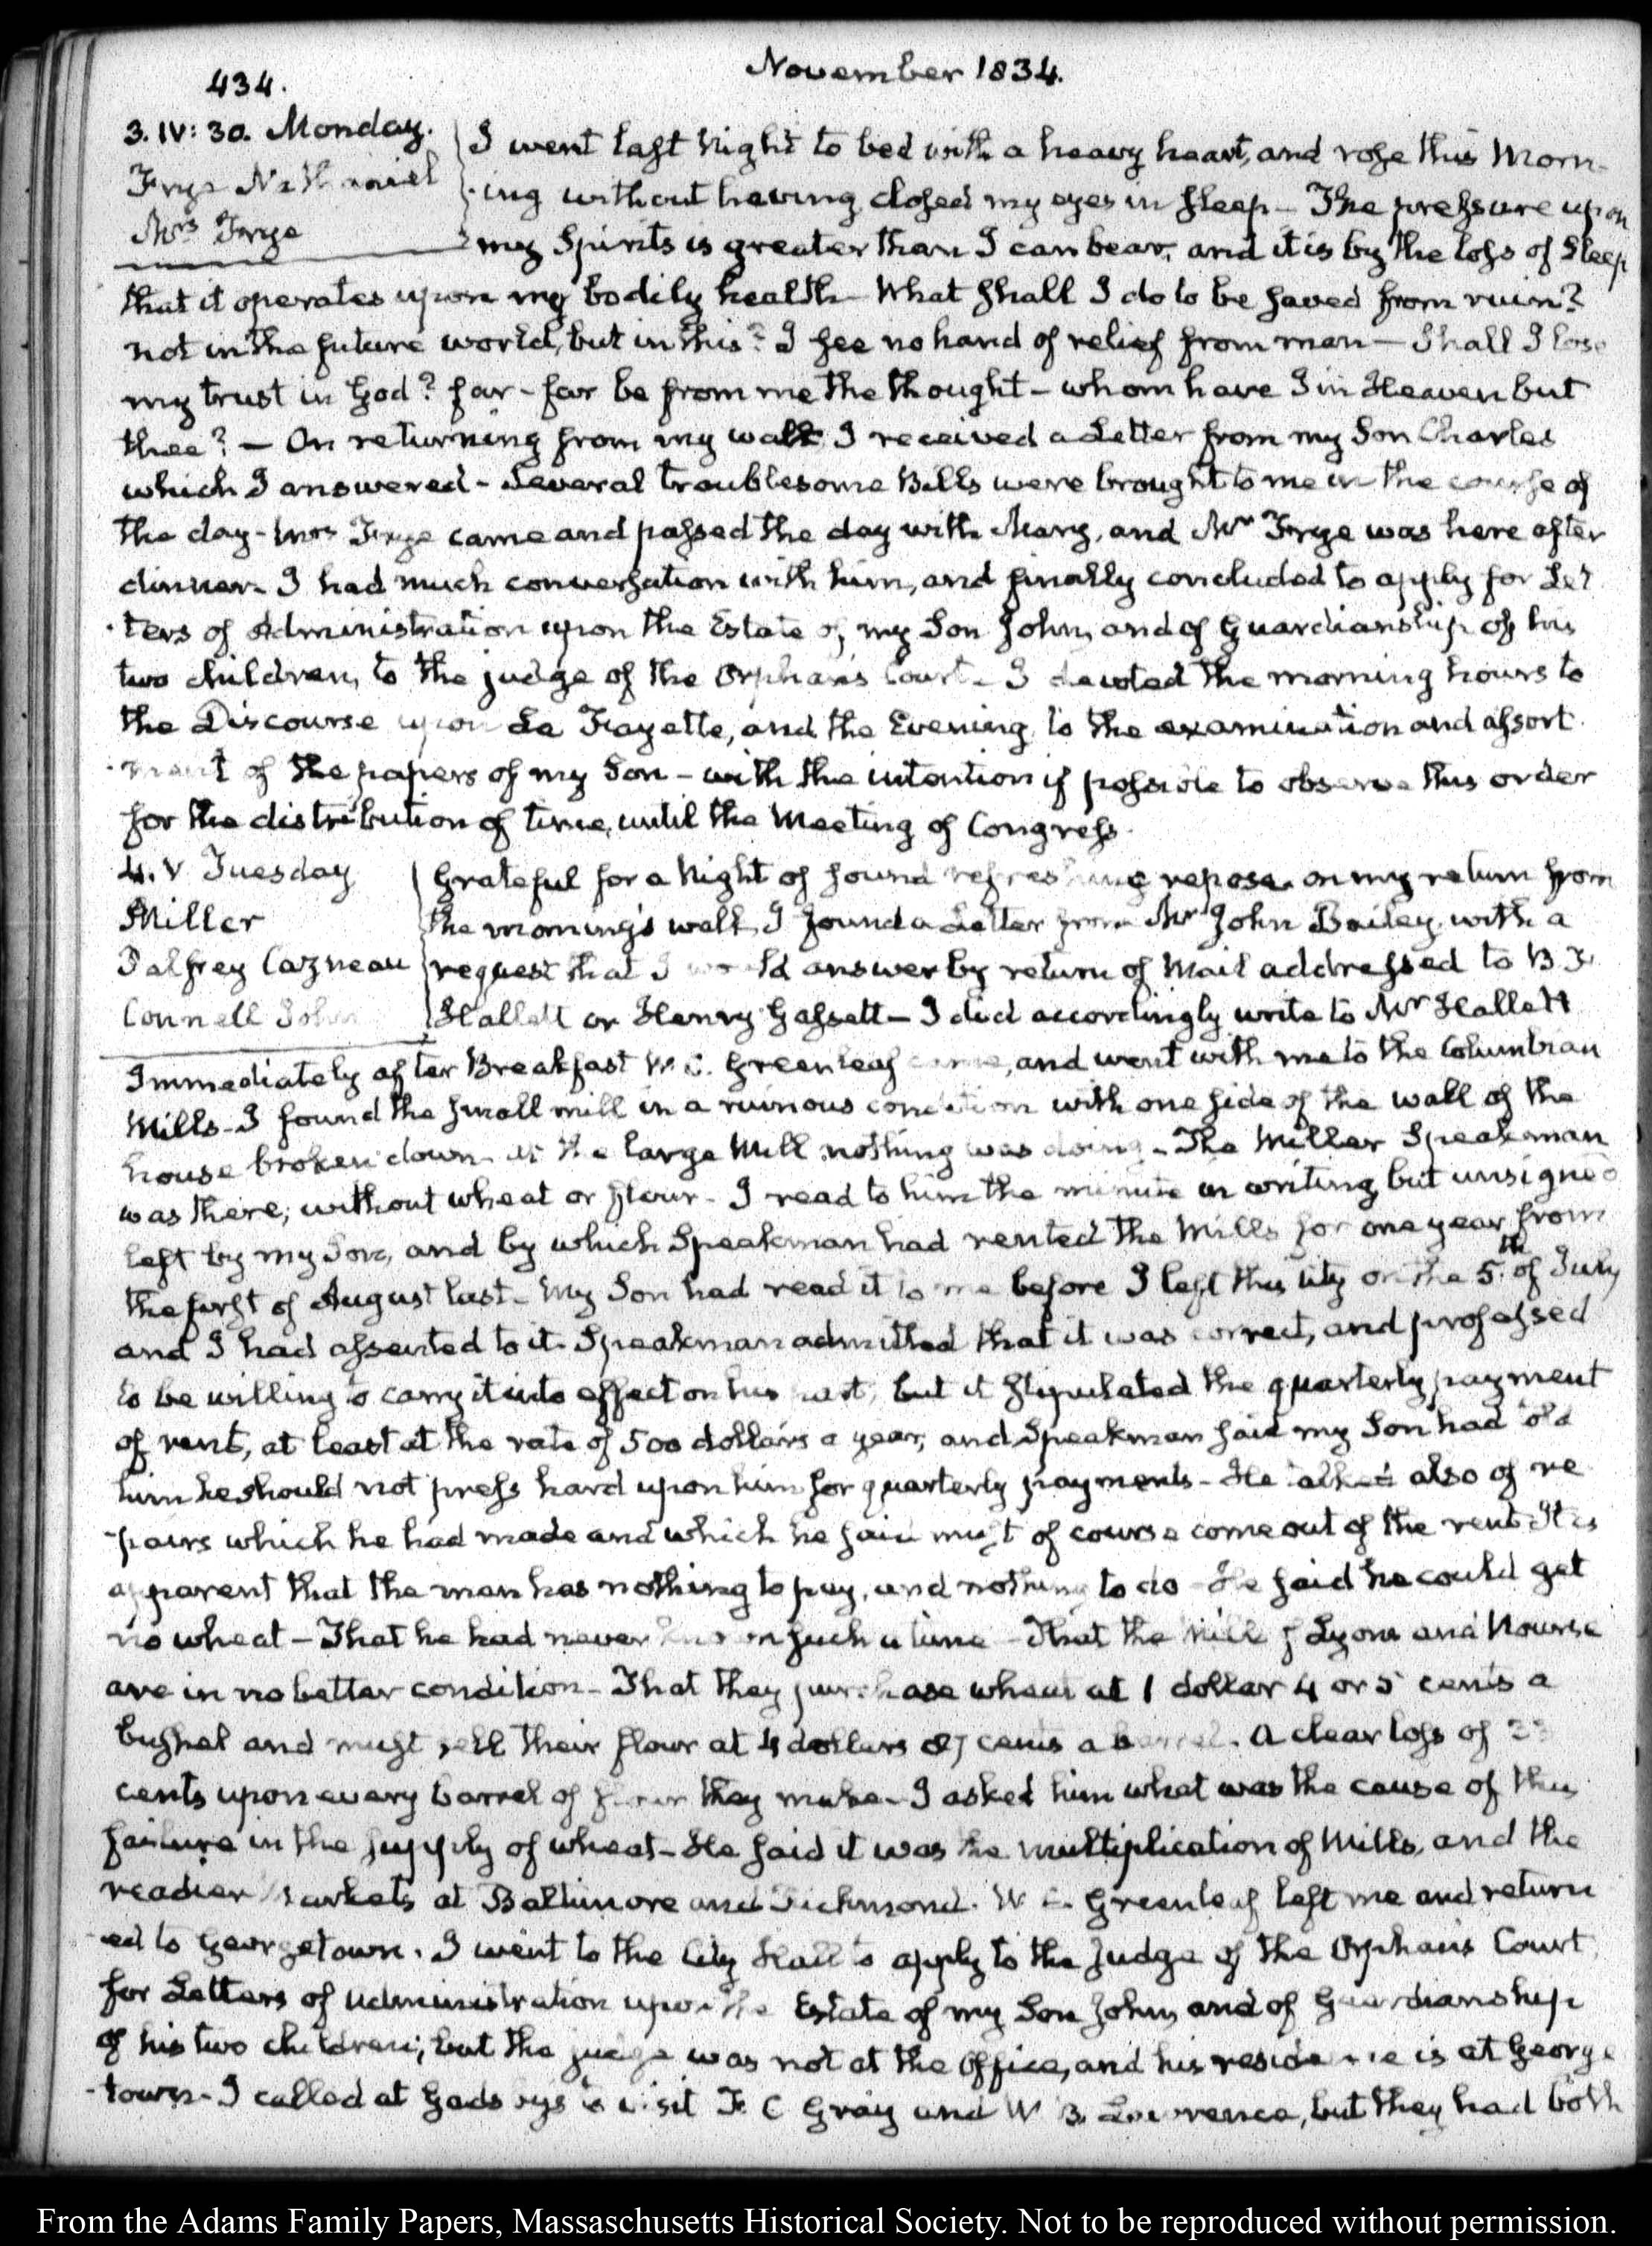 434.
November 1834.
3. IV: 30. Monday.
Frye Nathaniel
Mrs Frye
I went last Night to bed with a heavy heart, and rose this Morn-
ing without having closed my eyes in sleep— The pressure upon
my Spirits is greater than I can bear, and it is by the loss of Sleep
that it operates upon my bodily health— What shall I do to be saved from ruin?
not in the future world, but in this? I see no hand of relief from man— Shall I lose
my trust in God? far- far be from me the thought— whom have I in Heaven but
thee?— On returning from my walk I received a Letter from my Son Charles
which I answered- Several troublesome Bills were brought to me in the course of
the day- Mrs Frye came and passed the day with Mary, and Mr Frye was here after
dinner- I had much conversation with him, and finally concluded to apply for Let
-ters of Administration upon the Estate of my Son John, and of Guardianship of his
two children, to the judge of the Orphan's Court- I devoted the morning hours to
the Discourse upon La Fayette, and the Evening to the examination and assort
-ment of the papers of my Son- with the intention if possible to observe this order
for the distribution of time, until the Meeting of Congress.
4. V Tuesday
Miller
Palfrey Cazneau
Connell John
Grateful for a Night of sound refreshing repose. on my return from
the morning's walk, I found a Letter from Mr John Bailey, with a
request that I would answer by return of Mail addressed to B F
Hallett or Henry Gassett— I did accordingly write to Mr Hallett
Immediately after Breakfast W. C. Greenleaf came, and went with me to the Columbian
Mills- I found the small mill in a ruinous condition with one side of the wall of the
house broken down- at the large Mill nothing was doing- The Miller Speakman
was there; without wheat or flour- I read to him the minute in writing, but unsigned
left by my Son, and by which Speakman had rented the Mills for one year from
the first of August last- My Son had read it to me before I left this City on the 5th of July
and I had assented to it. Speakman admitted that it was correct, and professed
to be willing to carry it into effect on his part, but it stipulated the quarterly payment
of rent, at least at the rate of 500 dollars a year, and Speakman said my Son had told
him he should not press hard upon him for quarterly payments- He talked also of re
-pairs which he had made and which he said must of course come out of the rent. It is
apparent that the man has nothing to pay, and nothing to do- He said he could get
no wheat— That he had never known such a time- That the Mills of Lyons and Nourse
are in no better condition- That they purchase wheat at 1 dollar 4 or 5 cents a
bushel and must sell their flour at 4 dollars 87 cents a barrel. A clear loss of
cents upon every barrel of flour they make- I asked him what was the cause of this
failure in the supply of wheat- He said it was the multiplication of Mills, and the
readier Markets at Baltimore and Richmond. W C. Greenleaf left me and return
-ed to Georgetown. I went to the City Hall to apply to the Judge of the Orphan's Court
for Letters of administration upon the Estate of my Son John, and of Guardianship
of his two children; but the judge was not at the Office, and his residence is at George
-town- I called at Gadsby's to visit F. C Gray and W B. Lawrence, but they had both
From the Adams Family Papers, Massaschusetts Historical Society. Not to be reproduced without permission.